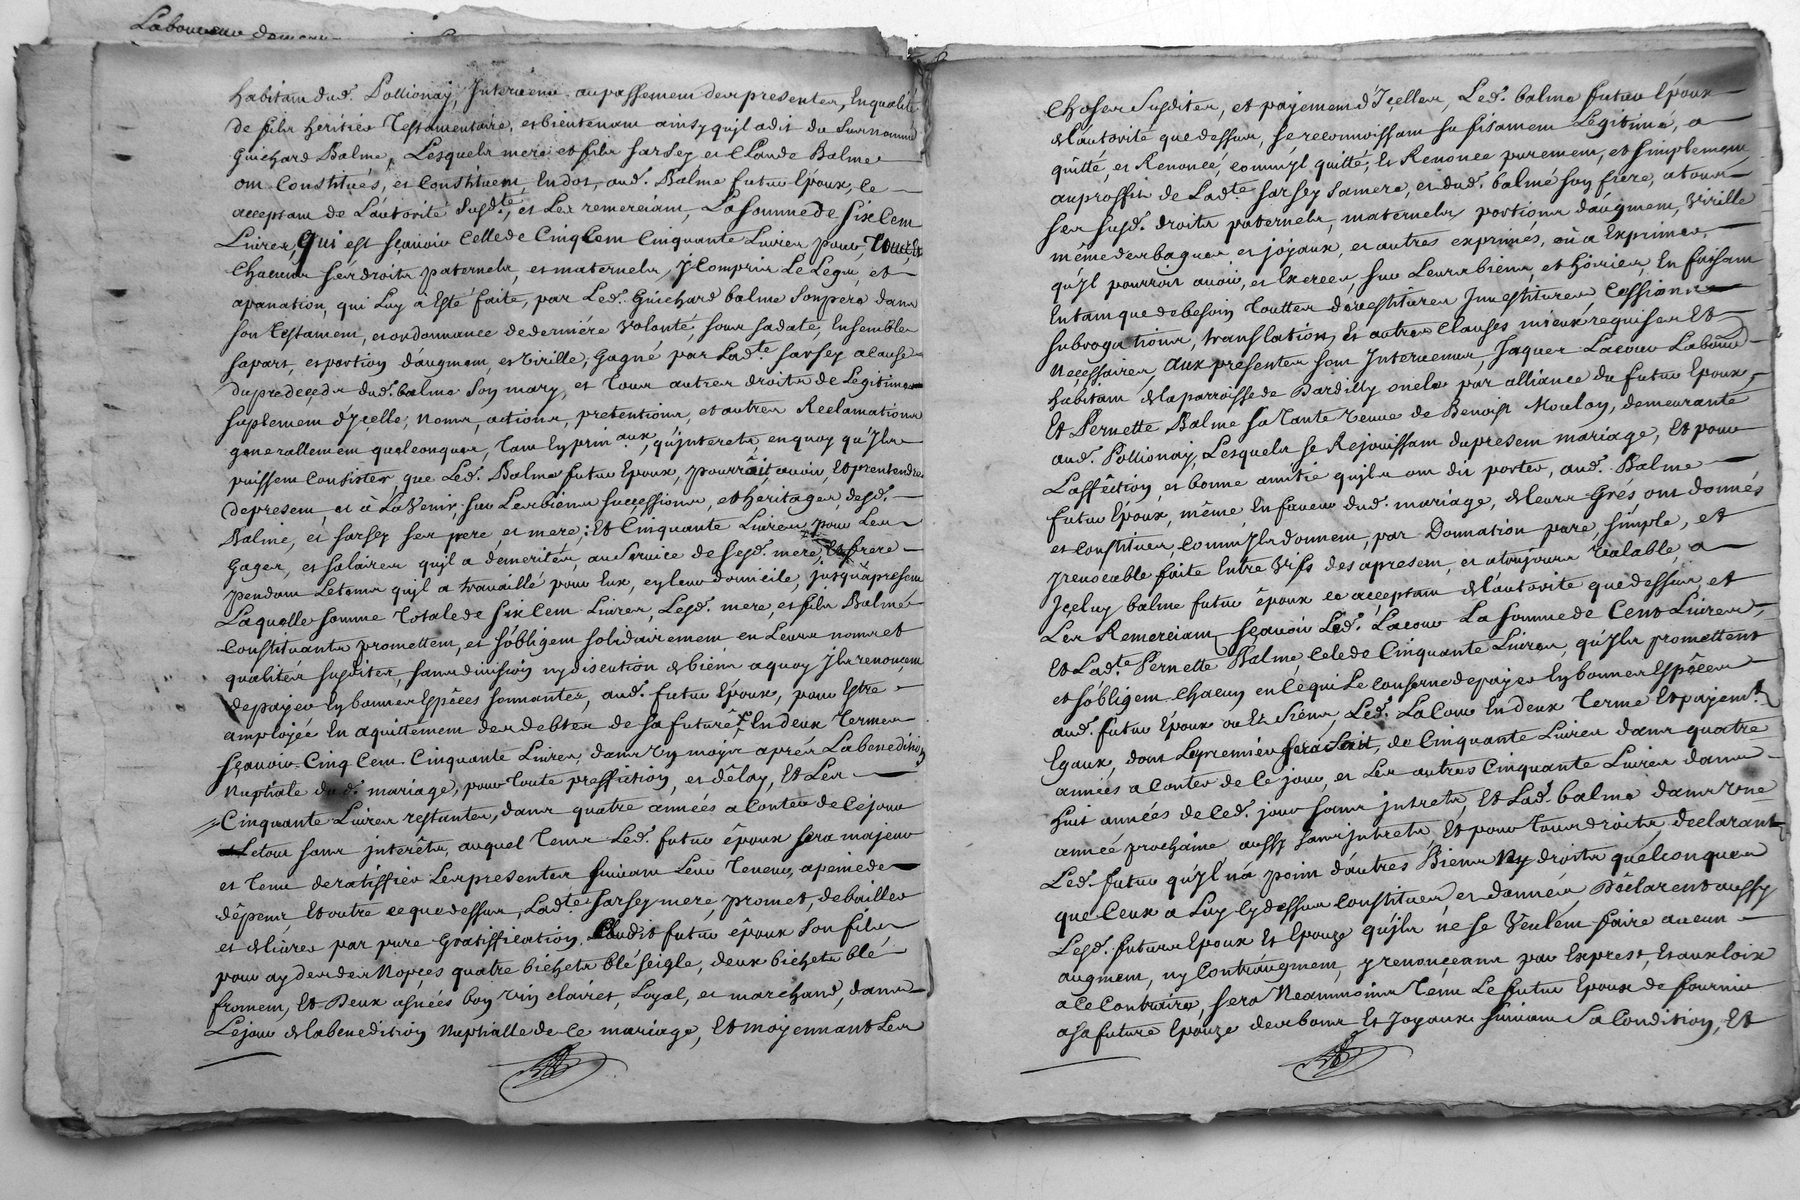 Laboureur demeur
habitant dud. Pollionay, Intervenu au passement des presentes, En qualité
de fils heritier Testamentaire, et bientenant ainsy qu'jl a dit du Surnommé
Guichard Balme, Lesquels mere et fils Sarsey et Claude Balme
ont Constitués, et Constituent, En dot, aud. Balme futur Epoux, ce
acceptant de L'autorité Susd.te, et Les remerciant, La Somme de Six Cent
Livres, qui est sçavoir Celle de Cinq Cent Cinquante Livres pour Tous Et
Chacuns ses droits paternels, et maternels, y Compris Le Legs, et
apanation, qui Luy à Esté faite, par Led. Guichard balme Son pere dans
Son Testament, et ordonnance de derniére Volonté, sous sa date, Ensembles
sa part, et portion d'augment, et Virille, Gagné par Lad.te Sarsey a Cause
du predecedz dud. balme Son mary, et Tous autres droits de Legitimes
Suplement d'Jcelle, noms, actions, pretentions, et autres Reclamations
generallement quelconques, Tant En prin.aux, qu'interets, en quoy qu'Jls
puissent Consister, que Led. Balme futur Epoux, pourrait avoir, Et prentendre
de present, et à L'avenir, sur Les biens successions, et heritages, desd.
Balme, et Sarsey ses pere et mere; Et Cinquante Livres pour Les
Gages, et Salaires qu'jl a demerités, au Service de Sesd. mere, Et frere
pendant Le tems qu'jl a travaillé pour Eux, en leur domicile, jusqu'à present
Laquelle Somme Totale de Six Cent Livres, Lesd. mere, et fils Balme
Constituants promettent, et s'obligent Solidairement en Leurs noms et
qualités Susdites, sans division ny discution de biens a quoy Jls renoncent
de payer En bonnes Espêces sonnantes, aud. futur Epoux, pour Estre
employée En aquittement des debtes de sa future En deux Termes
sçavoir Cinq Cent Cinquante Livres, dans Un mois aprés La benediction
Nuptiale dud. mariage, pour Toute preffiction, et délay, Et Les
Cinquante Livres restantes, dans quatre années a Conter de Ce jour
Le tout sans interêts, auquel Tems Led. futur époux sera majeur
et Tenu de ratiffier Les presentes suivant Leur Teneur, a peine de
dêpens Et outre ce que dessus, Lad.te Sarsey mere, promet, de bailler
et delivrer par pure Gratiffication, Audit futur époux Son fils
pour ayder des Nopces quatre bichets blé seigle, deux bichets blé
froment, Et Deux asnées bon vin clairet, Loyal, et marchand, dans
Le jour de la benediction Nuptialle de Ce mariage, Et moyennant Les
Choses Susdites, et payement d'Jcelles, Led. balme futur Epoux
de l'autorité que dessus, se reconnoissant Sufisament Legitimé, a
quitté, et Renoncé, comm'jl quitté, Et Renonce purement, et simplement
au proffit de Lad.te Sarsey Sa mere, et dud. balmé Son frere, a tous
ses susd. droits paternels, maternels, portions d'augment, Virille
même des bagues et joyaux, et autres exprimés, ou a Exprimer,
qu'jl pourroit avoir, et Exercer, sur Leurs biens, et hoiries, En faisant
En tant que de besoin Touttes devestitures Jnvestitures Cessions
subrogations, translations, Et autres Clauses mieux requises Et
Necessaires, Aux presentes sont Jntervenus, Jaques Lacour Laboud
habitant de la parroisse de Dardilly oncle par alliance du futur Epoux,
Et Pernette Balme sa Tante veuve de Benoist Moulon, demeurante
aud. Pollionay, Lesquels se Rejouissant du present mariage, Et pour
L'affêction, et bonne amitié qu'jls ont dit porter, aud. Balme
futur Epoux, même En faveur dud. mariage, de leurs Grés ont donnés
et constitues, comm'jls donnent, par Donnation pure, simple, et
jrrevocable faite Entre Vifs des a present, et a toujours valable, a
Jceluy balme futur époux ce acceptant de l'autorité que dessus, et
Les Remerciant, sçavoir Led. Lacour La Somme de Cent Livres,
Et Lad.te Pernette Balme, Celle de Cinquante Livres, qu'jls promettent
et s'obligent Chacun en Ce qui Le Conserne de payer En bonnes Espêces
aud. futur Epoux ou Et Siens, Led. LaCour En deux Terme Et payem.t
Egaux, dont Le premier sera de Cinquante Livres dans quatre
années a Conter de Ce jour, et Les autres Cinquante Livres dans
huit années de Ced. jour sans jnterets, Et Lad. balme dans une
année prochaine aussy sans jnterets Et pour tous droits declarant
Led. futur qu'jl n'a point d'autres Biens Ny droits quélconques
que Ceux a Luy Cy dessus Constitués, et donnés Dêclarent aussy
Lesd. futurs Epoux Et Epouze qu'jls ne se Veulent faire aucun
augment, ny Contraugment, y renonçeans par Exprest, Et aux loix
a Ce Contraires, sera Neanmoins Tenu Le futur Epoux de fournir
a sa future Epouze des bons Et Joyaux suivant Sa Condition, Et